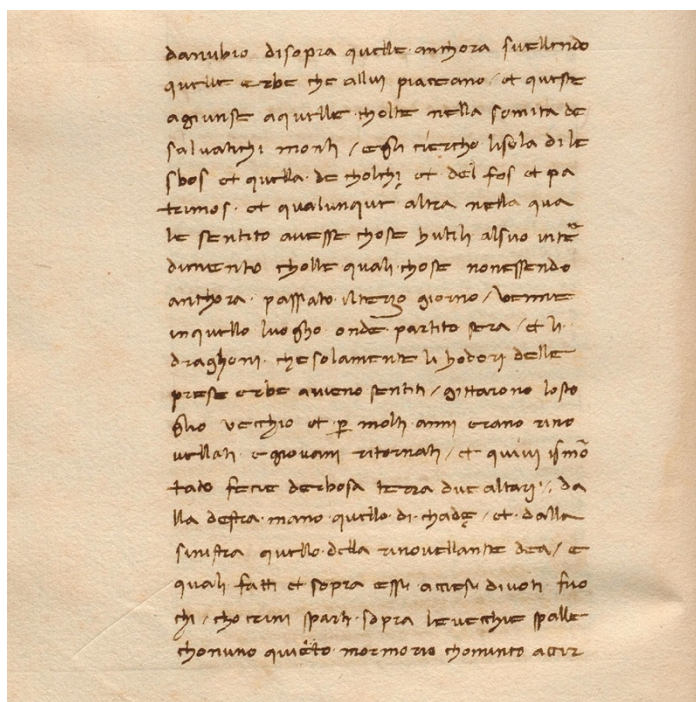 danubio disopra quelle anchora suellendo
quelle erbe che allui piaceano / et queste
agiunse aquelle tholte nella somita de
salvatichi monti / egli ciercho lisola dile
sbos et quella de cholchi et del fos et pa
trimos. et qualunque altra nella qua
le sentito avesse chose hutili alsuo inte͂
dimento cholle quali chose nonessendo
anchora passato ilterzo giorno / venne
inquello luogho onde partito sera / et li
draghoni. chesolamente li hodori delle
prese erbe avieno sentiti / gittarono losco
glio vecchio et ꝑ molti anni erano rino
vellati egiovani ritornati / et quivi ismo͂
tato fecie derbosa terra due altari /. da
lla destra mano quello di chade / et dalla
sinistra quello della rinovellante dea / e
quali fatti et sopra essi acciesi divoti fuo
chi / cho crini sparti sopra levecchie spalle
chonuno quieto mormorio chomincio accir